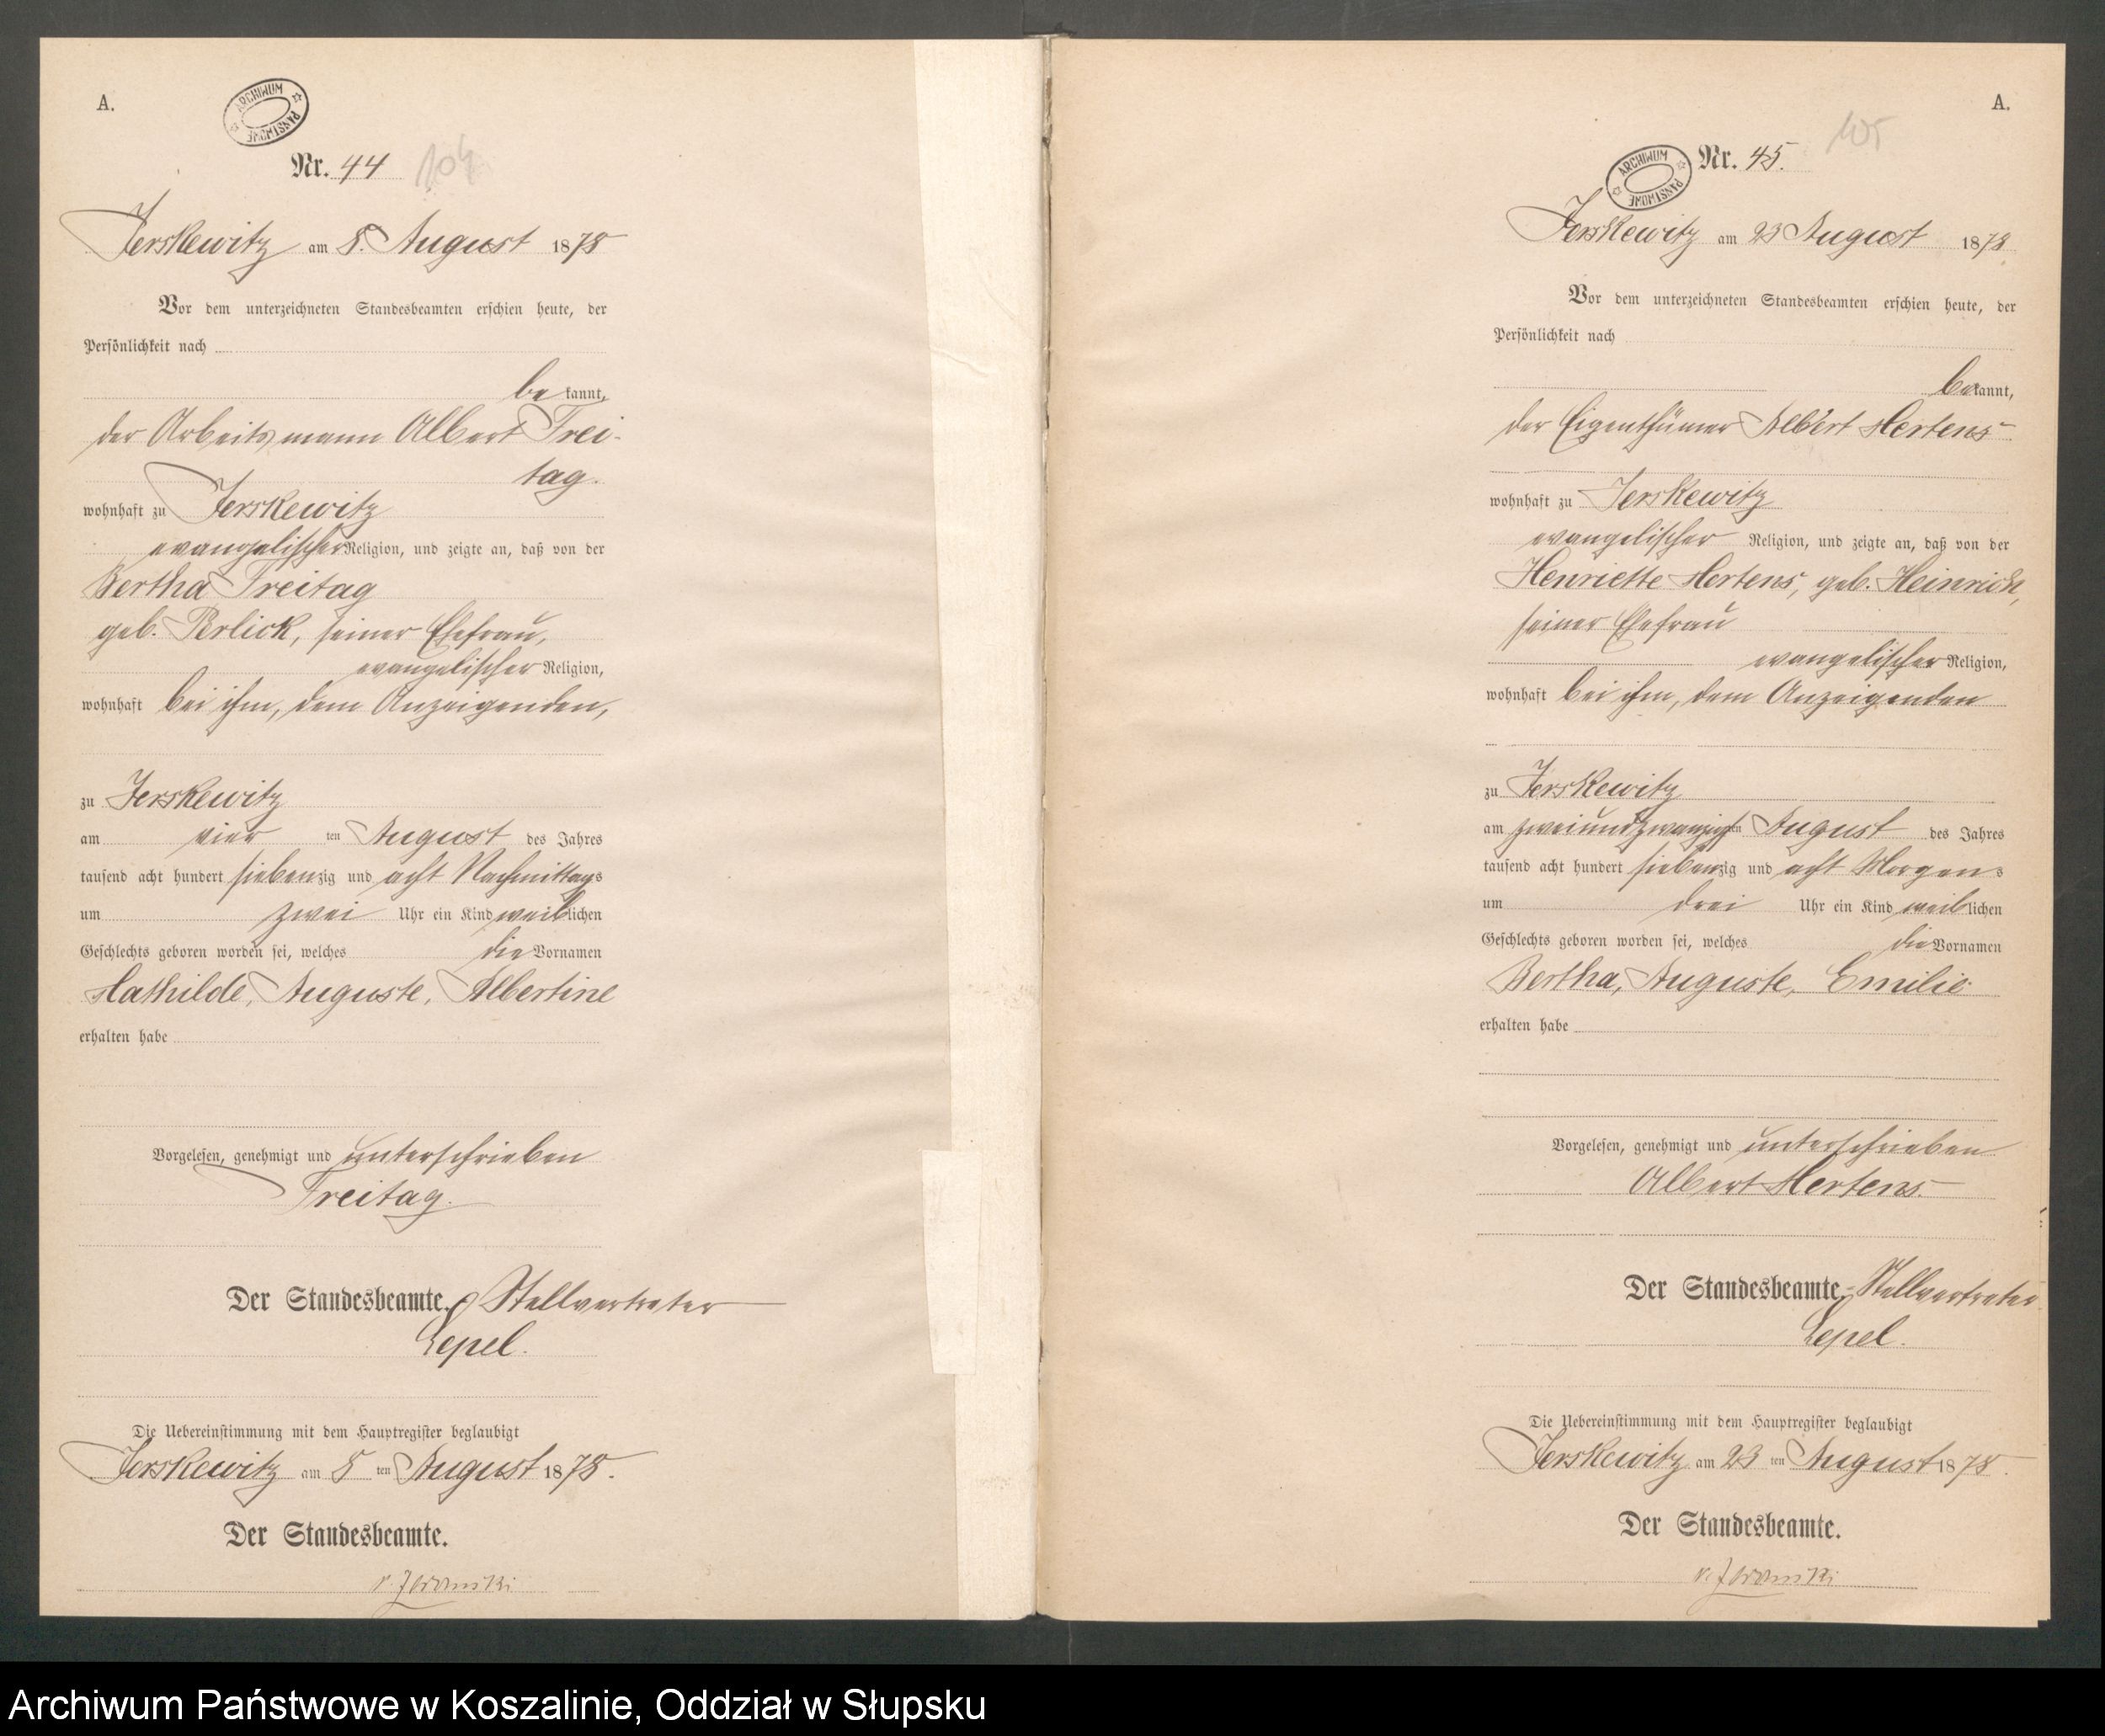 A.
ARCHIWUM PAŃSTWOWE
Nr. 44
104
Jerskewitz am 8. August 1878
Vor dem unterzeichneten Standesbeamten erschien heute, der
Persönlichkeit nach
be kannt,
der Arbeitsmann Albert Frei-
tag.
wohnhaft zu Jerskewitz
evangelischer Religion, und zeigte an, daß von der
Bertha Freitag
geb. Perlick, seiner Ehefrau,
evangelischer Religion,
wohnhaft bei ihm, dem Anzeigenden,
zu Jerskewitz
am vier ten August des Jahres
tausend acht hundert siebenzig und acht Nachmittags
um zwei Uhr ein Kind weiblichen
Geschlechts geboren worden sei, welches die Vornamen
Mathilde, Auguste, Albertine
erhalten habe
Vorgelesen, genehmigt und unterschrieben
Freitag.
Der Standesbeamte. Stellvertreter
Lepel.
Die Uebereinstimmung mit dem Hauptregister beglaubigt
Jerskewitz am 8 ten August 1878.
Der Standesbeamte.
A.
105
ARCHIWUM PAŃSTWOWE
Nr. 45.
Jerskewitz am 23 August 1878
Vor dem unterzeichneten Standesbeamten erschien heute, der
Persönlichkeit nach
bekannt,
der Eigenthümer Albert Mertens
wohnhaft zu Jerskewitz
evangelischer Religion, und zeigte an, daß von der
Henriette Mertens, geb. Heinrich,
seiner Ehefrau
evangelischer Religion,
wohnhaft bei ihm, dem Anzeigenden
zu Jerskewitz
am zweiundzwanzigsten August des Jahres
tausend acht hundert siebenzig und acht Morgens
um drei Uhr ein Kind weiblichen
Geschlechts geboren worden sei, welches die Vornamen
Bertha, Auguste, Emilie
erhalten habe
Vorgelesen, genehmigt und unterschrieben
Albert Mertens.
Der Standesbeamte. Stellvertreter
Lepel.
Die Uebereinstimmung mit dem Hauptregister beglaubigt
Jerskewitz am 23 ten August 1878.
Der Standesbeamte.
Archiwum Państwowe w Koszalinie, Oddział w Słupsku